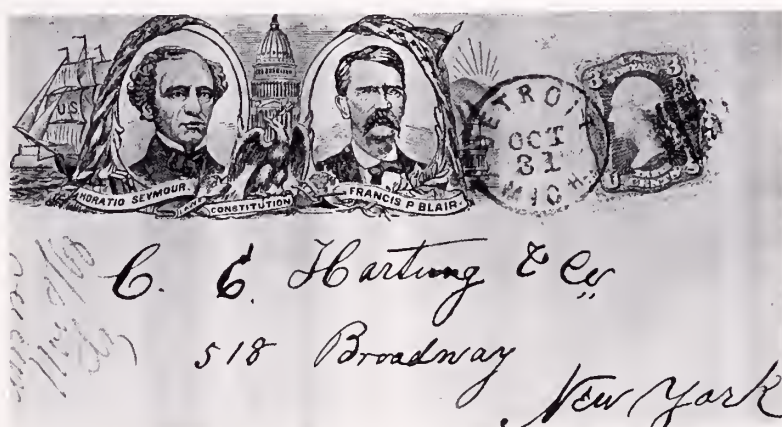 U.S.
HORATIO SEYMOUR.
CONSTITUTION
FRANCIS P BLAIR.
DETROIT
OCT
31
MICH.
3 3
C. C. Hartung & Co
518 Broadway
New York